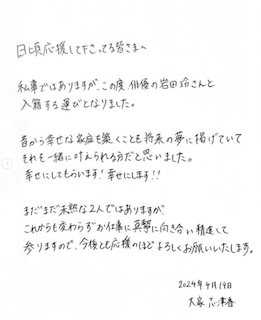 日頃応援して下さってる皆さまへ
私事ではありますが、この度、俳優の岩田玲さんと
入籍する運びとなりました。
昔から幸せな家庭を築くことも将来の夢に掲げていて
それも一緒に叶えられる方だと思いました。
幸せにしてもらいます！幸せにします！！
まだまだ未熟な2人ではありますが、
これからも変わらずお仕事に真摯に向き合い精進して
参りますので、今後とも応援のほどよろしくお願いいたします。
2024年4月19日
大塚 志津香